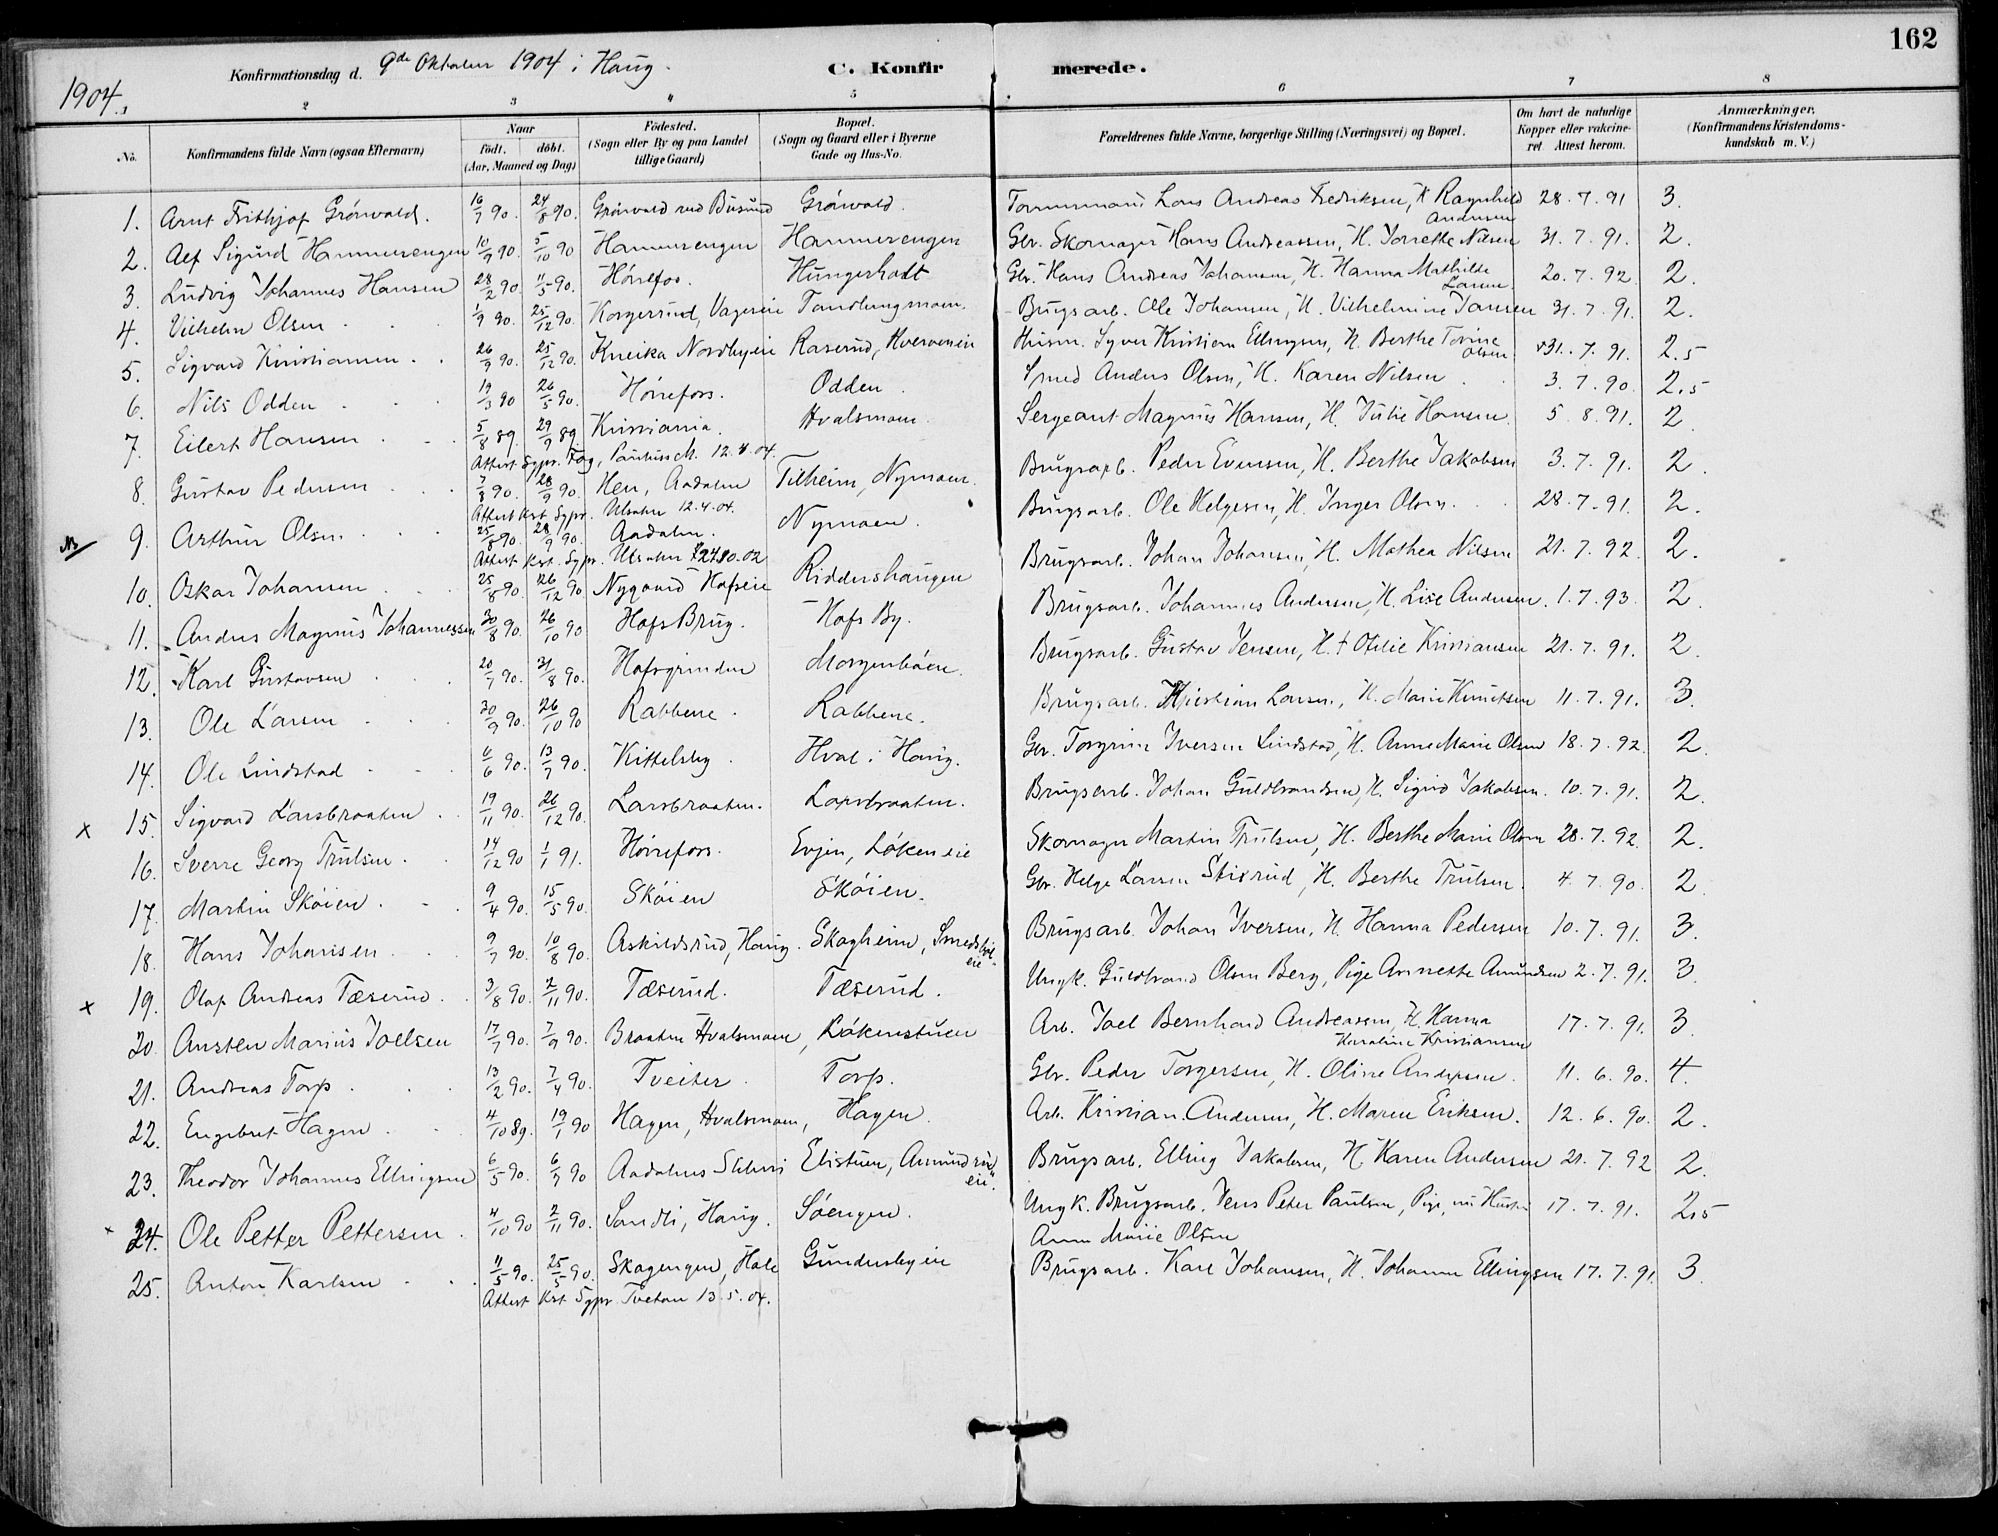 162
Konfirmationsdag d. 9de Oktober 1904 i Haug. C. Konfirmerede.
1904.
2 3 4 5 6 7 8
No. Konfirmandens fulde Navn (ogsaa Efternavn) Naar født. døbt. (Aar, Maaned og Dag) Fødested. (Sogn eller By og paa Landet tillige Gaard) Bopæl. (Sogn og Gaard eller i Byerne Gade og Hus-No. Forældrenes fulde Navne, borgerlige Stilling (Næringsvei) og Bopæl. Om havt de naturlige Kopper eller vakcineret Attest herom. Anmærkninger, (Konfirmandens Kristendomskundskab m. V.)
1. Arnt Frithjof Grönvold. 16/7 90. 24/8 90. Grönvold ved Busund Grönvold. Tømmermand Lars Andreas Fredriksen, H. Ragnhild Andersen 28.7.91 3.
2. Alf Sigurd Hammerengen 10/9 90. 5/10 90 Hammerengen Hammerengen Gbr. Skomager Hans Andreassen, H. Jorrette Nilsen 31.7.91. 2.
3. Ludvig Johannes Hansen 28/2 90. 11/5 90. Hönefos. Hungerholt Gbr. Hans Andreas Johansen, H. Hanna Mathilde Larsen 20.7.92. 2.
4. Vilhelm Olsen 1/9 90. 25/12 90. Korgerud, Vagereie Tandbergmoen. Brugsarb. Ole Johansen, H. Vilhelmine Jansen 31.7.91. 2.
5. Sigvard Kristiansen 26/9 90. 25/12 90. Kneika Nordbyeie Raserud, Hverveneie Husm. Syver Kristian Ellingsen, H. Berthe Torine Olsen 31.7.91. 2.5
6. Nils Odden 19/3 90 26/5 90. Hönefoss. Odden. Smed Anders Olsen, H. Karen Nilsen 3.7.90. 2.5
7. Eilert Hansen 5/8 89. 29/9 89. Kristiania. Hvalsmoen. Sergeant Magnus Hansen, H. Julie Hansen. 5.8.91. 2.
Attest Sgpr. Fog, Paulus M. 12.4.04.
8. Gustav Pedersen 7/8 90. 28/9 90. Hen, Aadalen Tilheim, Nymoen. Brugsarb. Peder Evensen, H. Berthe Jakobsen 3.7.91. 2.
Attest Kst. Sgpr. Ulsaker 12.4.04.
9. Arthur Olsen 25/8 90. 28/9 90. Aadalen. Nymoen. Brugsarb. Ole Helgesen, H. Inger Olsen. 28.7.91. 2.
Attest Kst. Sgpr. Ulsaker
10. Oskar Johansen 25/8 90. 26/12 90 Nygaard Hofseie Riddershaugen Brugsarb. Johan Johansen, H. Mathea Nilsen 21.7.92. 2.
11. Anders Magnus Johannessen 30/8 90. 26/10 90 Hofs Brug. Hofs By. Brugsarb. Johannes Andersen, H. Lise Andersen. 1.7.93. 2.
12. Karl Gustavsen 20/7 90. 31/8 90. Hofsgrinden Morgenbøen. Brugsarb. Gustav Jensen, H. † Otilie Kristiansen 21.7.91. 2.
13. Ole Larsen 30/9 90. 26/10 90 Rabbene. Rabbene. Brugsarb. Kristian Larsen, H. Marie Knutsen 11.7.91. 3.
14. Ole Lindstad 11/6 90. 13/7 90. Kittelsby. Hval i Haug. Gbr. Torgrim Iversen Lindstad, H. Anne Marie Olsen 18.7.92. 2.
x 15. Sigvard Larsbraaten 19/11 90. 26/12 90. Larsbraaten. Larsbraaten. Brugsarb. Johan Guldbrandsen, H. Sigrid Jakobsen. 10.7.91. 2.
16. Sverre Georg Trulsen 14/12 90 1/1 91. Hönefoss. Evjen, Løkeneie Skomager Martin Trulsen, H. Berthe Marie Olsen 28.7.92. 2.
17. Martin Skøien 9/4 90. 15/5 90. Skøien Skøien. Gbr. Helge Larsen Stixrud, H. Berthe Trulsen 4.7.90. 2.
18. Hans Johansen 9/7 90. 10/8 90. Askildsrud, Haug. Skogheim, Smedsbøleie. Brugsarb. Johan Iversen, H. Hanna Pedersen 10.7.91. 3.
x 19. Olaf Andreas Tæserud 3/8 90. 2/11 90. Tæserud. Tæserud. Ungk. Guldbrand Olsen Berg, Pige Annette Amundsen 2.7.91. 3.
20. Ansten Marius Joelsen 17/7 90. 7/9 90. Braaten Hvalsmoen, Løkenstuen Arb. Joel Bernhard Andreasen, H. Hanna Karoline Kristiansen 17.7.91. 3.
21. Andreas Torp 13/2 90. 7/4 90. Tveiter. Torp. Gbr. Peder Torgersen, H. Oline Andersen. 11.6.90. 4.
22. Engebret Hagen 4/10 89. 19/1 90 Hagen, Hvalsmoen, Hagen. Arb. Kristian Andersen, H. Maren Eriksen. 12.6.90. 2.
23. Theodor Johannes Ellingsen 6/5 90. 6/7 90 Aadalens Sliberi Elistuen, Amundrudeie. Brugsarb. Elling Jakobsen, H. Karen Andersen 21.7.92 2.
24. Ole Petter Pettersen 4/10 90 2/11 90. Sandli, Haug. Søengen. Ungk. Brugsarb. Jens Peter Paulsen, Pige, nu Hustru Anne Marie Olsen 17.7.91. 2,5
25. Anton Karlsen 11/5 90. 25/5 90. Skogengen, Hole Gundersbyeie Brugsarb. Karl Johansen, H. Johanne Ellingsen 17.7.91. 3.
Attest Kst Sgpr Tvetan 13.5.04.